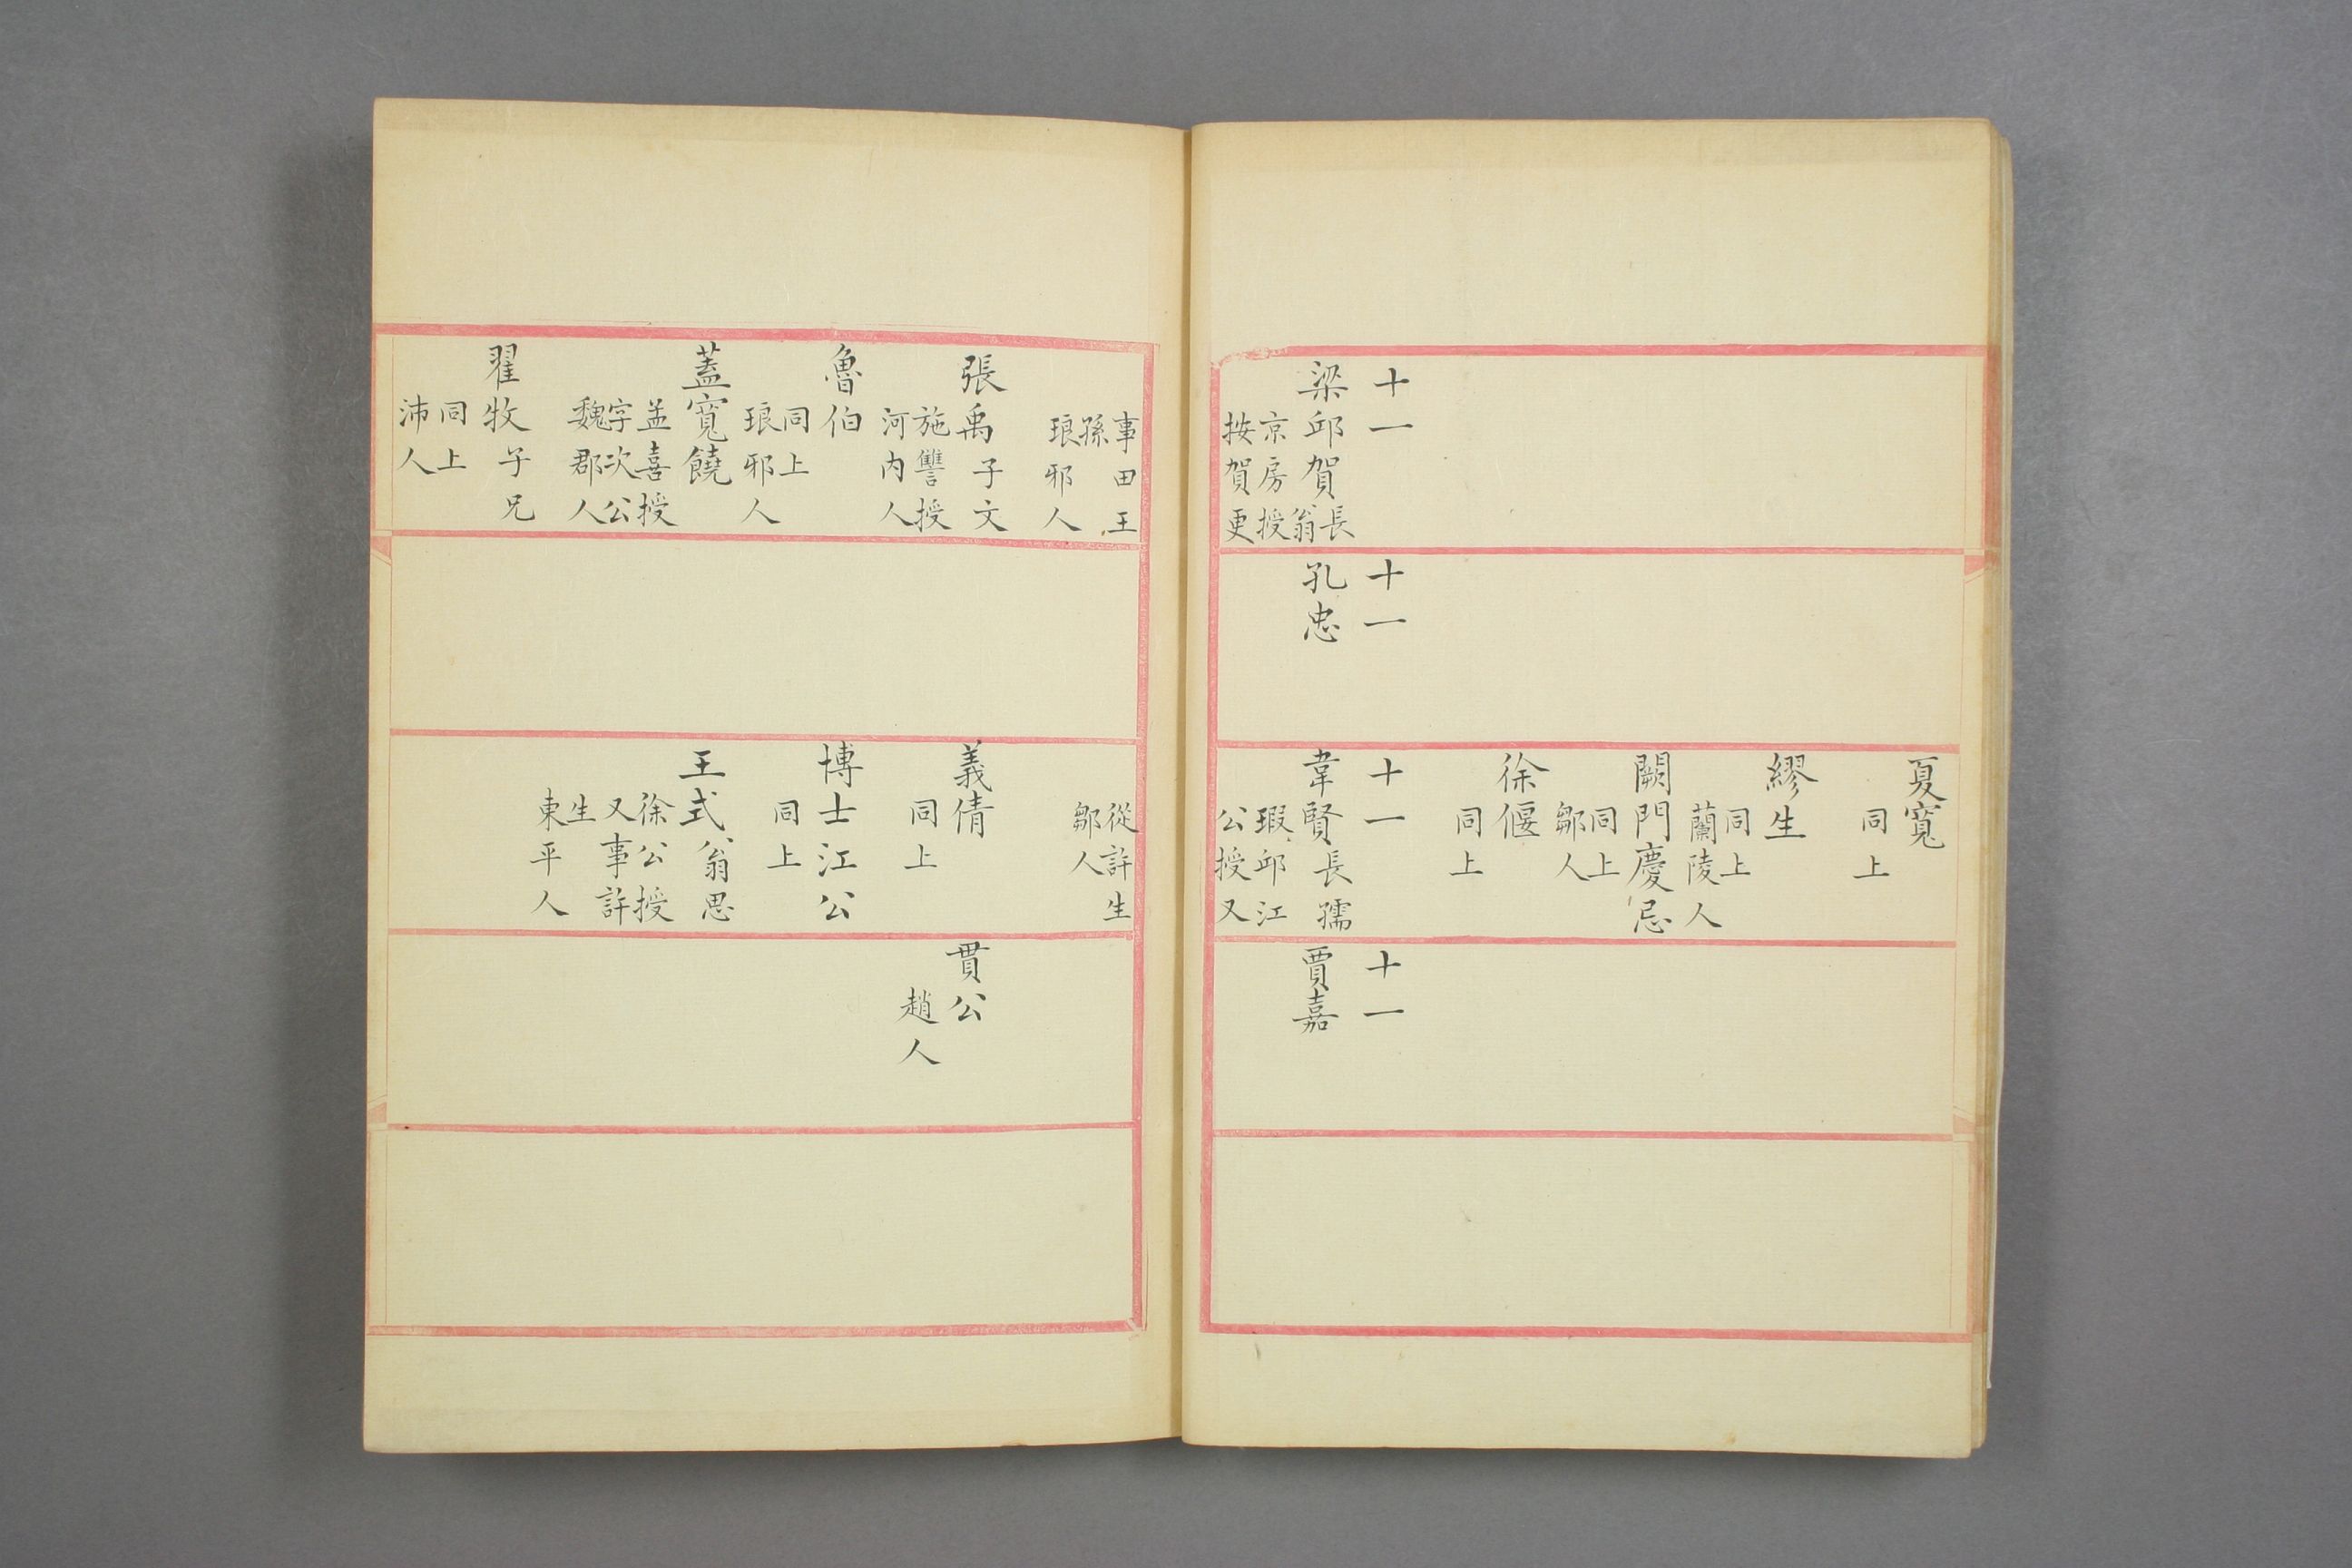 夏寬
同上
繆生
同上
蘭陵人
闕門慶忌
同上
鄒人
徐偃
同上
十一
梁邱賀長
翁
京房授
按賀更
十一
孔忠
十一
韋賢長孺
瑕邱江
公授又
十一
賈嘉
事田王
孫
琅邪人
張禹子文
施讐授
河內人
魯伯
同上
琅邪人
蓋寬饒
孟喜授
字次公
魏郡人
翟牧子兄
同上
沛人
從許生
鄒人
義倩
同上
博士江公
同上
王式翁思
徐公授
又事許
生
東平人
貫公
趙人